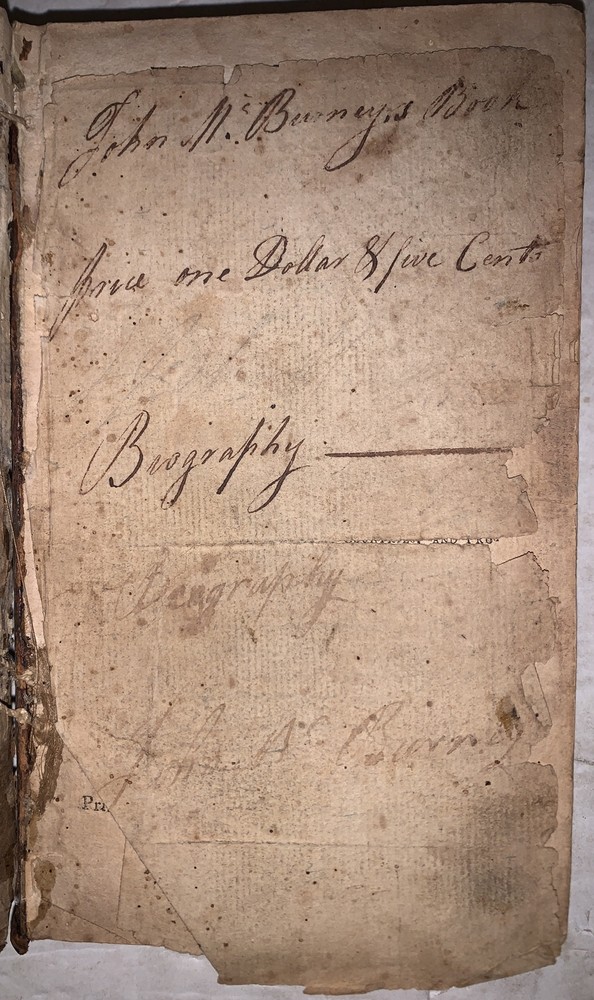 John Mc. Burney,s Book
price one Dollar & five Cents
Biography
AND PRO
Geography
John Mc Burney
Pri